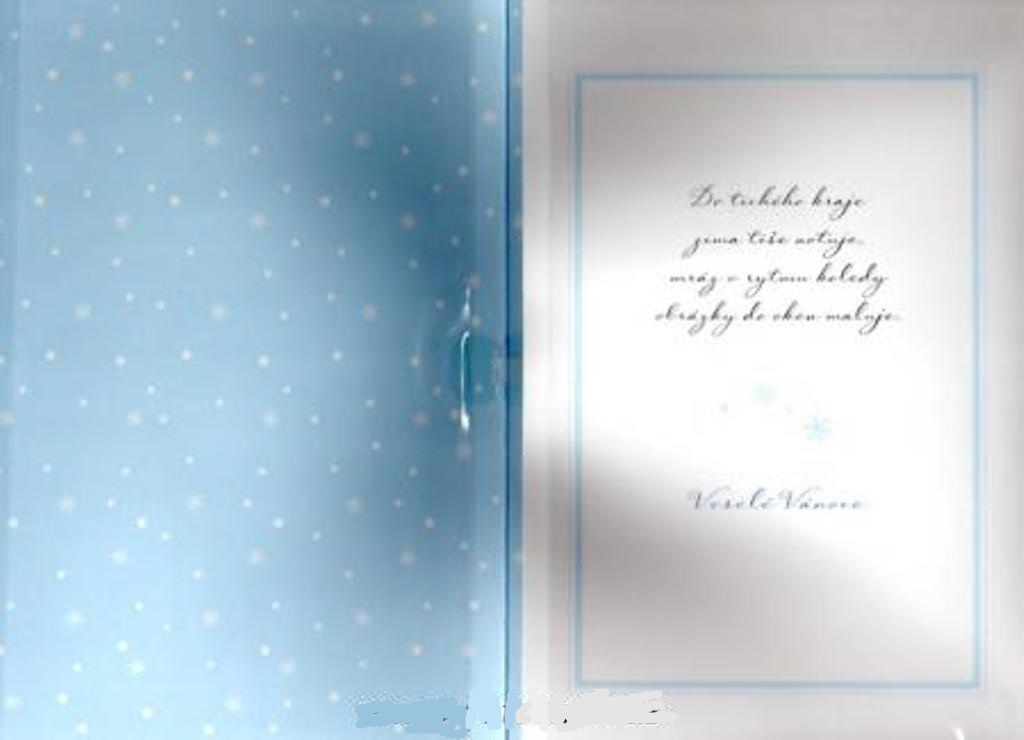 Do tichého kraje
zima tiše notuje,
mráz v rytmu koledy
obrázky do oken maluje.
Veselé Vánoce